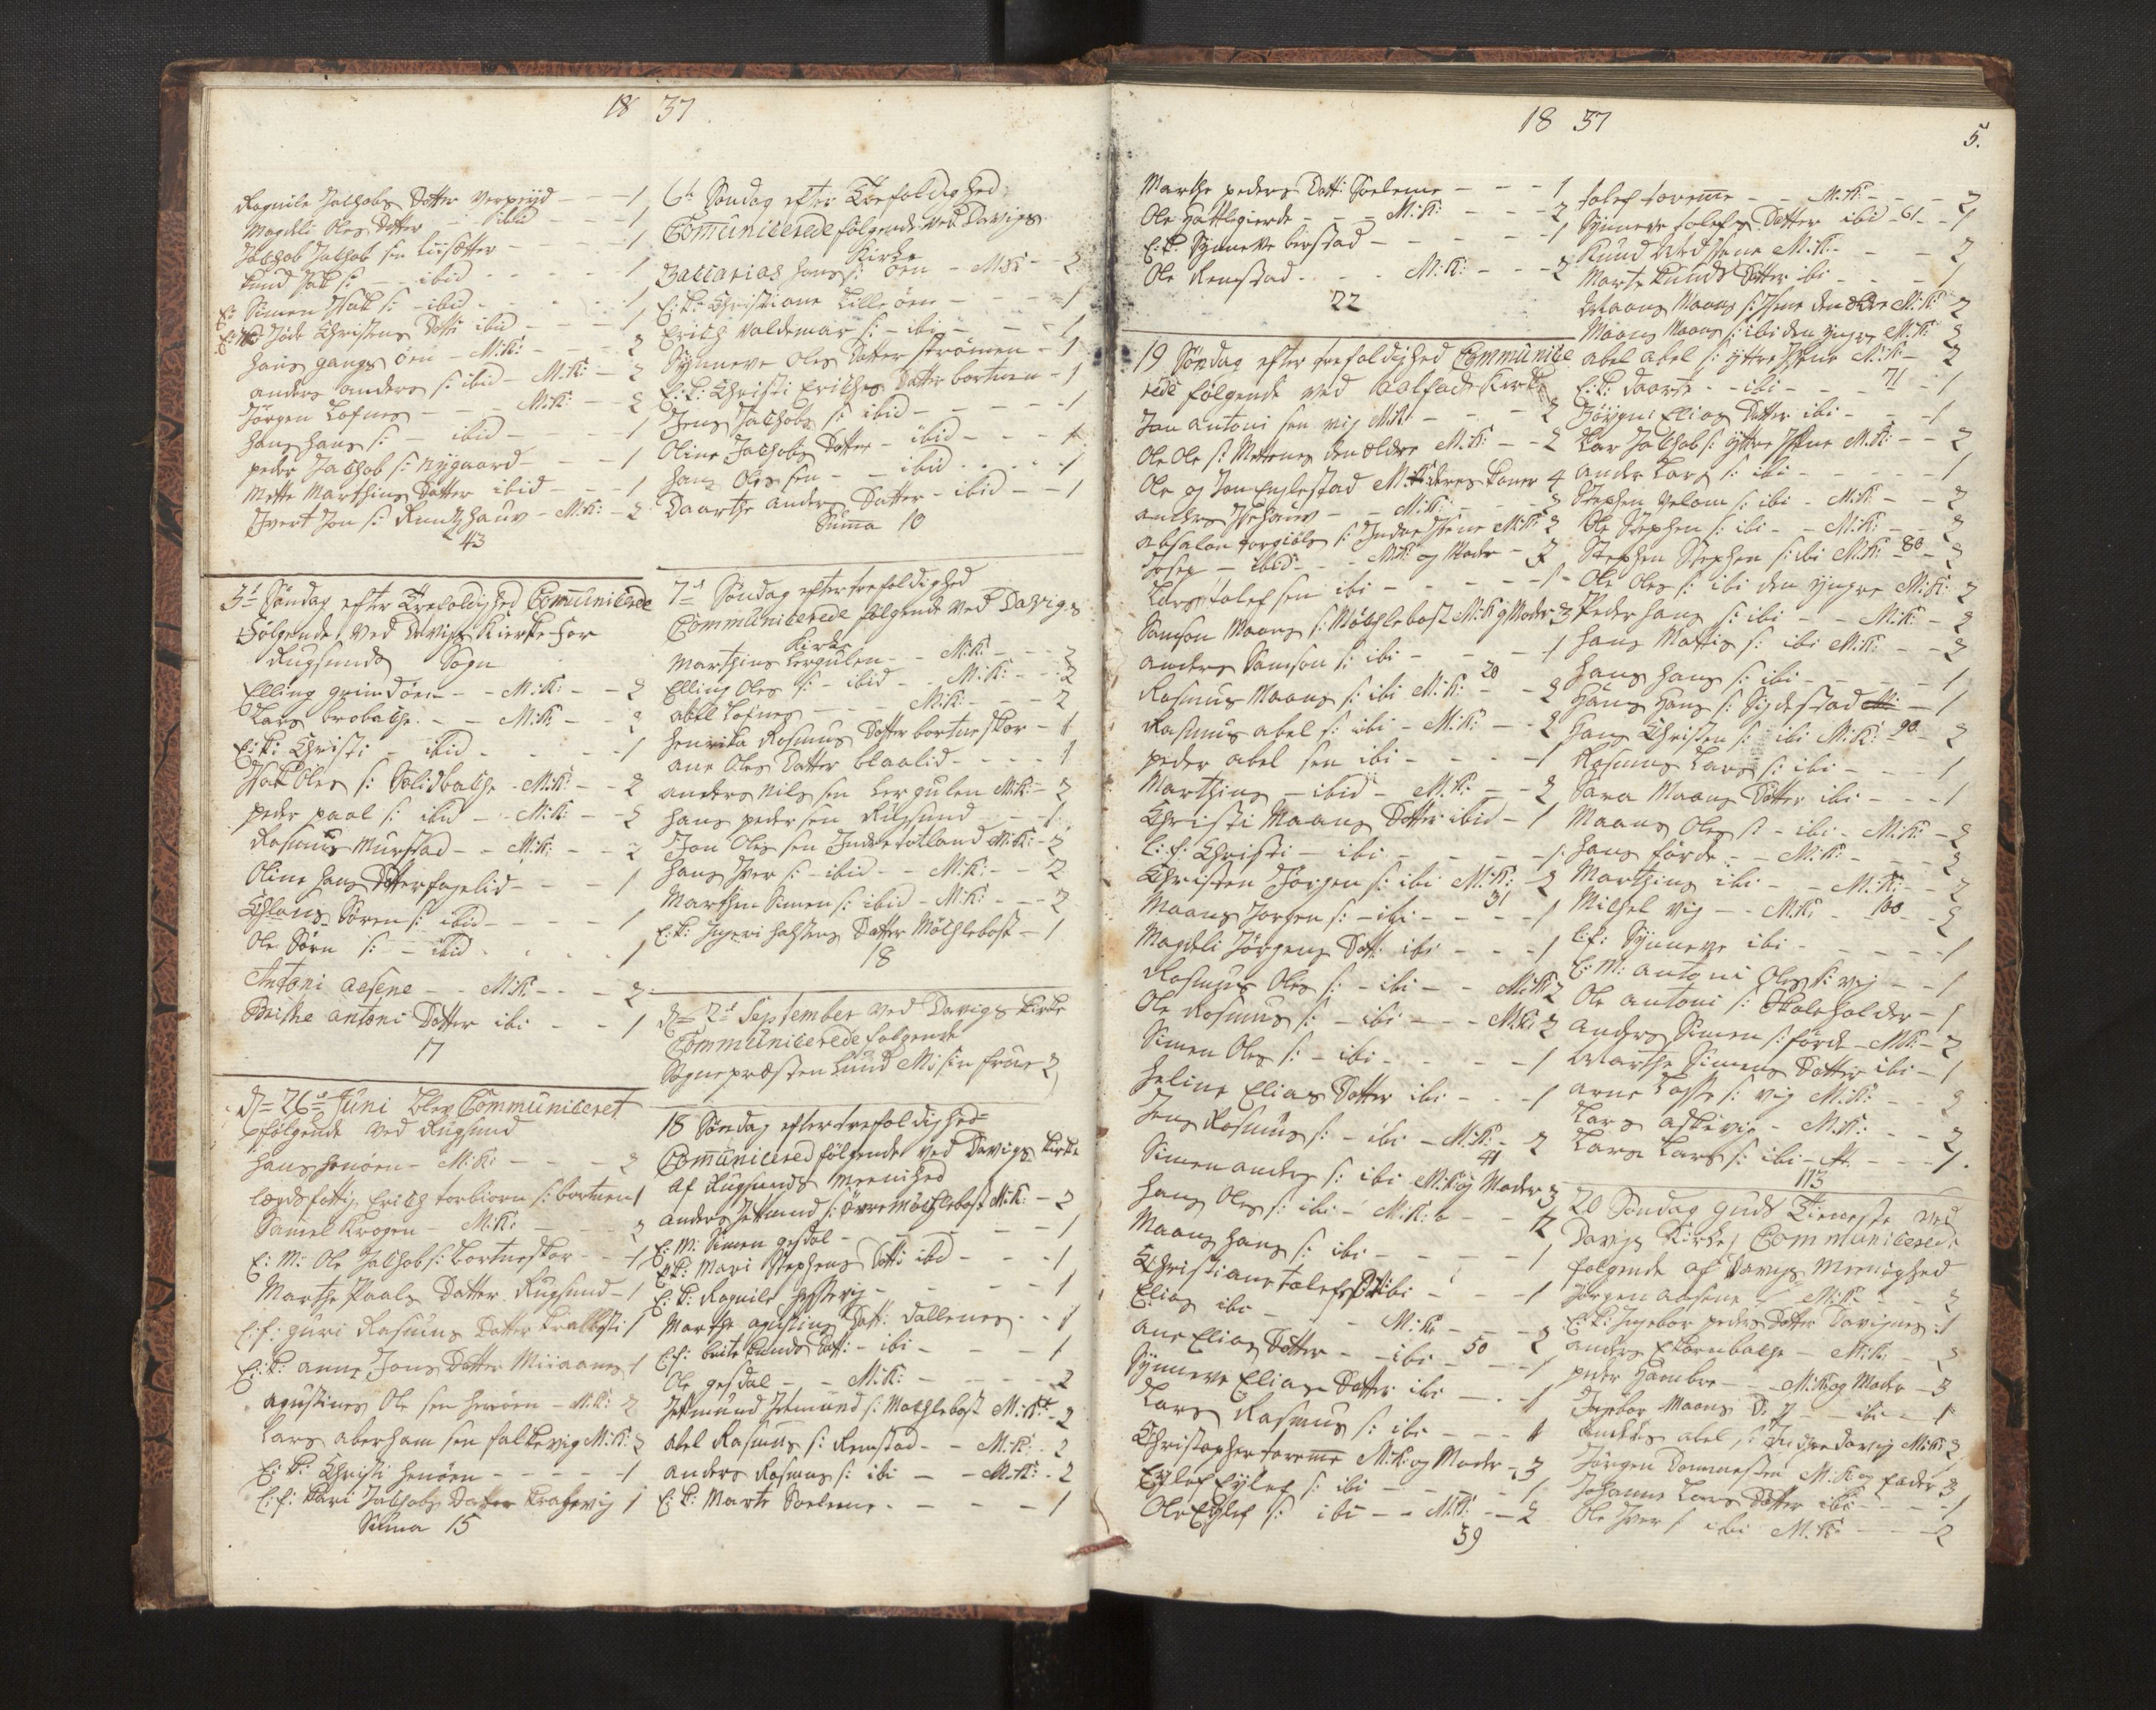 18 37
Ragnile Jalchobs Datter Verpeyd - - 1
Magdli Oles Datter - ibid - - 1
Jalchob Jalchob sen Liisætter - - 1
Knud Jak s: - - ibid - - 1
E: Simen Jsak s: - ibid - - 1
Christens Datt: ibid - - 1
Hans gangs öen - M:K: - - 2
anders anders s: ibid - M:K: - 2
Jörgen Lofnes - - - M:K: - 2
Hans Hans s: - ibid - - 1
peder Jalchob s: Nygaard - - 1
Mette Marthins Datter ibid - - 1
Jvert Jon s: - M:K: - 2
43
3d Söndag efter Trefoldighed Communicerede
Fölgende ved Davigs Kierke for
Rugsunds Sogn
Elling grindöen - - M:K: - - 2
Lars brobakke - - M:K: - - 2
E: K: Christi - ibid - - 1
Jsak Oles s: - M:K: - - 2
peder paal s: ibid - - M:K: - - 2
Rasmus Murstad - - M:K: - - 2
Oline Hans Datter fagelid - - - 1
Sören s: ibid - - - 1
Ole Sörn s: - ibid - - 1
Antoni aasene - - M:K: - - - 2
antoni Datter ibi - - - 1
17
D= 26de Juni blev Communiceret
fölgende ved Rugsund
Hans Henöen - M:K: - - - 2
lægdsfattig Erich torbiorn s: bortnen 1
Samel Krogen - M:K: - - - 2
E: M: Ole Jalchob s: bortneskor - - 1
Marthe Paals Datter Rugsund - 1
E: f: guri Rasmus Datter 1
E: K: anne Jons Datter 1
agustines Ole sen Henöen - M:K: 2
Lars aberham sen falkevig M:K: 2
E: K: Christi Henöen - - - - - 1
E: f: Kari Jalchobs Datter Krakevig 1
Suma 15
6te Söndag efter Trefoldighed
Comunicerede fölgende ved Davigs
Kirke
Zaccarias Hans s: öen - M:K: - - 2
E: K: Christiane Lilleöen - - - - 1
Erich Valdemar s: - ibi - - - 1
Synneve Oles Datter strömen - 1
E: K: Christi Erichs Datter bortnen - 1
Jens Jalchobs s: ibid - - - - - 1
Oline Jalchobs Datter - ibid - - - 1
Hans Oles sen - - ibid - - - 1
Daarthe anders Datter - ibid - - 1
Suma 10
7de Söndag efter trefoldighed
Communicerede fölgende ved Davigs
Kirke
Marthins Lergulen - - M:K: - - - 2
Elling Oles s: - ibid - - M:K: - - 2
abel Lofnes - - - M:K: - - - 2
Henrika Rasmus Datter bortneskor - 1
ane Oles Datter blaalid - - - - 1
anders Nils sen Lergulen M:K: - 2
Hans peder sen Rugsund - - 1
Jon Oles sen Jndretotland M:K: - 2
Hans Jver s: - ibid - - M:K: - - 2
Marthin Simen s: ibid - M:K: - - - 2
E: K: Jngeri Halstens Datter Mölchlebost - 1
18
D= 2d September ved Davigs Kirke
Communicerede følgende
Sognepræsten Lund M: sin frue 2
18 Söndag efter trefoldighed
Comunicered fölgende ved Davigs Kirke
af Rugsunds Meenihed
anders s: övre Mölchlebost M:K: - 2
E: M: Simen gesdal - - - - - - 1
E: K: Mari Stephens Datt: ibd - - - 1
E: K: Ragnile - - - - 1
Marthe agustins Datt: Dallenes - - 1
E: f: brite Knuds Datt: - ibi - - - 1
Ole gesdal - - M:K: - - - - - 2
s: Mölchlebost M:K: 2
abel Rasmus s: Remstad - - M:K: - 2
anders Rasmus s: ibi - - M:K: - 2
E: K: Marte Soelemo - - - - 1
18 37
5.
Marthe peders Datt: Soeleme - - - 1
Ole Hattlegierde - - - M:K: - - - 2
E: K: Synneve berstad - - - - - 1
Ole Remstad - - - M:K: - - - 2
22
19 Söndag efter trefoldighed Communice
rede fölgende ved aalfods Kirke
Jon antoni sen vig M:K: - - - - 2
Ole Ole s: den ældre M:K: - - 2
Ole og Jon Englestad M:K: deres koner 4
anders - - M:K: - - - - 2
absalon s: Jndrehjene M:K: 2
Josep - ibid - - M:K: og Moder - 3
Lars tolef sen ibi - - - - - - 1
Samson Maans s: Mölchlebost M:K: og Moder 3
anders Samson s: ibi - - - - 1
20
Rasmus Maans s: ibi M:K: - - 2
Rasmus abel s: ibi - M:K: - - 2
peder abel sen ibi - - - - 1
Marthins - ibid - M:K: - - 2
Christi Maans Datter ibid - 1
E: f: Christi - ibi - - - - - 1
Christen Jörgen s: ibi M:K: - 2
31
Maans Jorgen s: - ibi - - - - 1
Magdeli Jörgens Datt: ibi - - - 1
Rasmus Oles s: - ibi - - M:K: 2
Ole Rasmus s: - ibi - - - M:K: 2
Simen Oles s: - ibi - - - - 1
Heline Elias Datter ibi - - - 1
Jens Rasmus s: - ibi - M:K: - 2
41
Simen anders s: ibi M:K: og Moder 3
Hans Oles s: ibi - M:K: - - 2
Maans Hans s: ibi - - - - - 1
Christiane tolefs Datt: ibi - - - 1
Elias ibi - - - M:K: - - - 2
50
ane Elias Datter - - ibi - - - 1
Synneve Elias Datter ibi - - - 1
Lars Rasmus s: ibi - - - - 1
Christopher toreme M:K: og Moder - 3
Eylef Eylef s: ibi - - - - - 1
Ole Eylef s: ibi - - M:K: - - 2
59
tolef toreme - - M:K: - - - 2
Synneve tolefs Datter ibid - 61 - 1
Knud M:K: - - - 2
Marte Knuds Datter ibi - - - 1
Maans Maans s: Hjene den ældre M:K: 2
Maans Maans s: ibi den yngre M:K: 2
abel abel s: yttre Hjene M:K: - 2
71
E: K: Daarte - - ibi - - - 1
Elias Datter ibi - - - 1
Lar Jalchob s: yttre Hjene M:K: - - 2
ander Lars s: ibi - - - - - 1
Stephen s: ibi - M:K: - - 2
Ole Stephen s: ibi - - M:K: - - 2
Stephen Stephen s: ibi M:K: 80 - 2
Ole Oles s: ibi den yngre M:K: 2
Peder Hans s: ibi - - M:K: - 2
Hans Mattis s: ibi M:K: - - 2
Hans Hans s: ibi - - - - - 1
Hans Hans s: - - 1
Hans Christen s: ibi M:K: 90 - 2
Rasmus Lars s: ibi - - - 1
Sara Maans Datter ibi - - - 1
Maans Oles s: - ibi - M:K: - 2
Hans förde - - M:K: - - - 2
Marthins ibi - - M:K: - - 2
Michel vig - - M:K: - 100 - 2
E: f: Synneve ibi - - - - - 1
E: M: antoni Oles s: vig - - 1
Ole antoni s: Skoleholder - 1
anders Simen s: förde - M:K: - 2
Marthe Simens Datter ibi - 1
arne s: vig M:K: - - 2
Lars askevig - M:K: - - - 2
Lars Lars s: ibi - - - - 1
113
20 Söndag guds Tieneste ved
Davigs Kirke Communicerede
følgende af Davigs Menighed
Jörgen aasene - M:K: - - - 2
E: K: Jngebor peders Datter Davignes - 1
anders - M:K: - - 2
peder Hambre - - M:K: og Moder - 3
Jngebor Maans D: - ibi - 1
anders abel s: Jndredavig M:K: 2
Jörgen Dommesten M:K: og fader 3
Johanne Lars Datter ibi - - - - 1
Ole Jver s: ibi M:K: - - - - 2